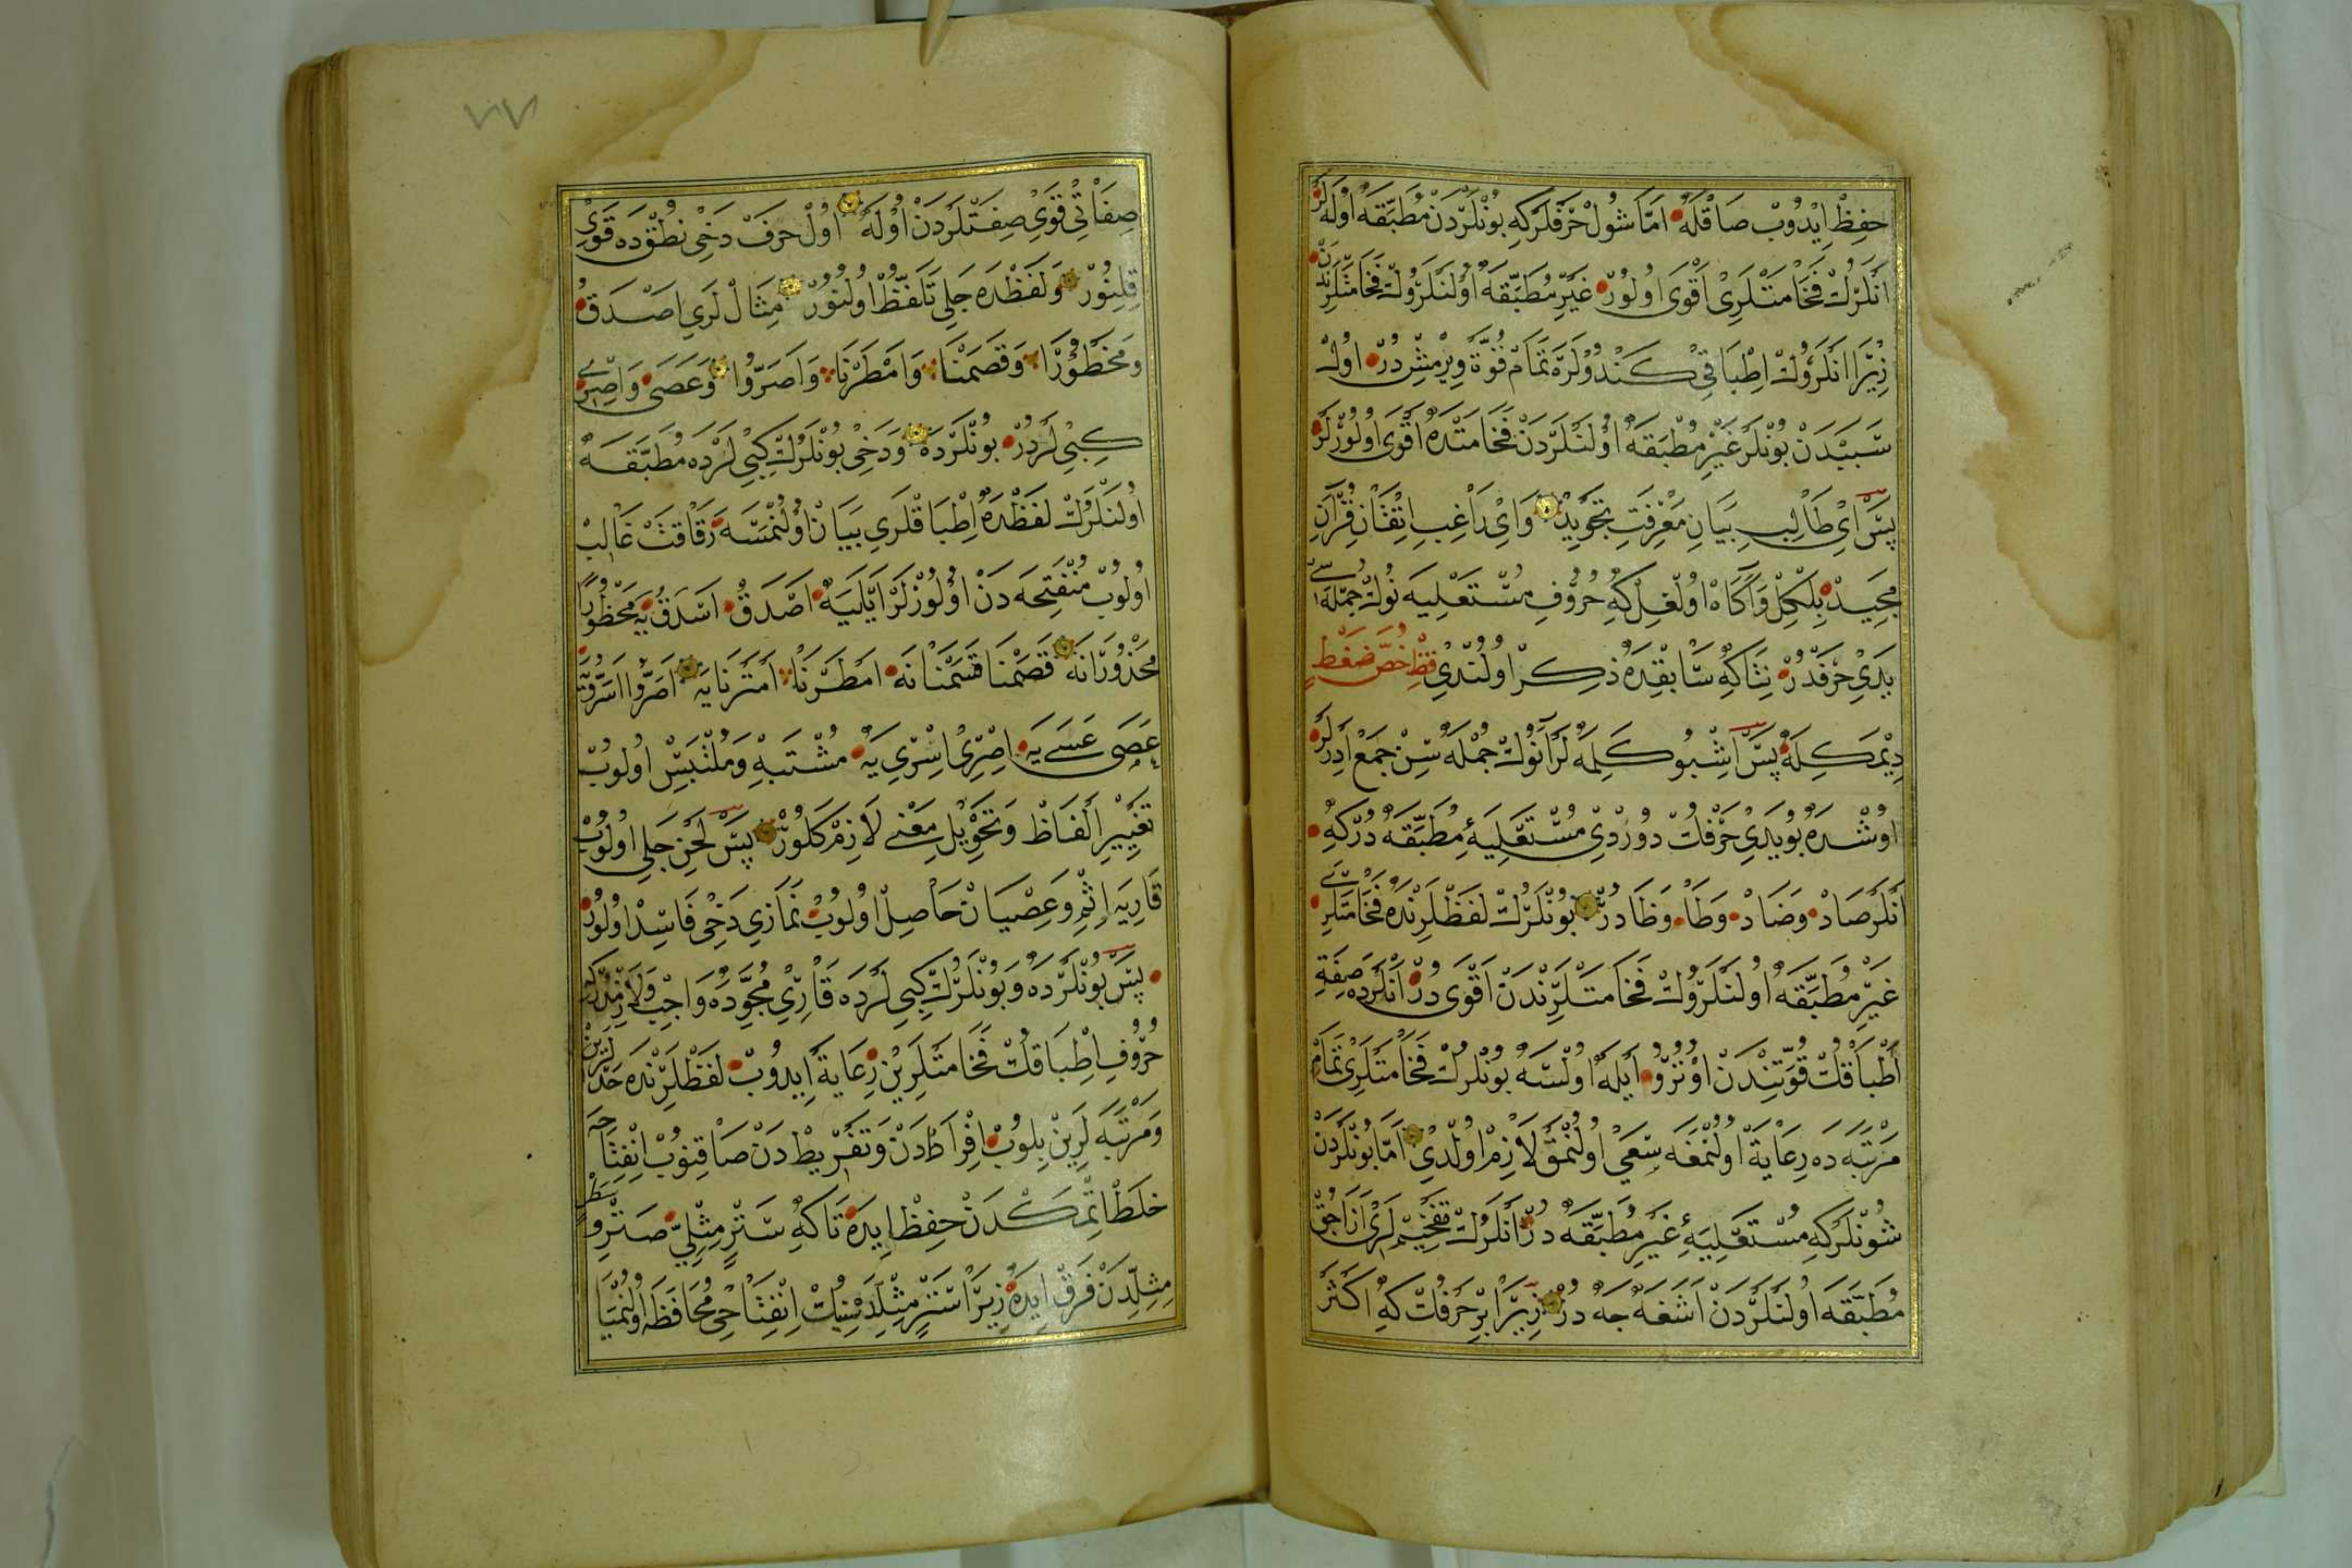 حِفِظْ اِيْدُوبْ صَاقْلَهْ اَمَّا شُولْ حَرْفْلَرْكِهِ بُونْلَرْدَنْ مُطْبَقَه اوُلَهْلَرْ
اَنْلَرُكْ فَخَامَتْلَرِى اَقْوَى اوُلُورْ غَيْرِ مُطْبَقَهْ اوُلَنْلَرُوكْ فَخَامَتْلَرِنْدَنْ
زِيْرَا اَنْلَرُوكْ اِطْبَاقِى كَنْدُولَرَهْ تَمَامْ قُوَّةْ وِيْرْمِشْدُرْ اوُلْ
سَبَبْدَنْ بُونْلَرْ غَيْرِ مُطْبَقَهْ اوُلَنْلَرْدَنْ فَخَامَتْدَهْ اَقْوَى اوُلُورْلَرْ
پَسْ اَىْ طَالِبِ بَيَانِ مَعْرِفَتِ تَجْوِيدْ وَاىْ رَاغِبِ اِتْقَانِ قُرْآنِ
مَجِيدْ بِلْكِلْ وَآكَاهْ اوُلْغِلْ كِهْ حُرُوفِ مُسْتَعْلِيَه نُوكْ جُمْلَه سِى
يَدِىْ حَرْفْدُرْ نِتَاكِهْ سَابِقْدَهْ ذِكِرْ اوُلُنْدِىْ قِظْ خُصَّ ضَغْطٍ
دِيْمَكِلَهْ پَسْ اِشْبُو كَلِمَهْلَرْ اَنُوكْ جُمْلَهْ سِنْ جَمِعْ اَدَرْلَرْ
اوُشْدَهْ بُو يَدِىْ حَرْفُكْ دُورْدِىْ مُسْتَعْلِيَهءِ مُطْبَقَهْ دُرْ كِهْ
اَنْلَرْ صَادْ وَضَادْ وَطَا وَظَا دُرْ بُونْلَرُكْ لَفْظْلَرِنْدَهْ فَخَامَتْلَرِى
غَيْرِ مُطْبَقَهْ اوُلَنْلَرُوكْ فَخَامَتْلَرِنْدَنْ اَقْوَى دُرْ اَنْلَرْدَه صِفَةِ
اِطْبَاقُكْ قُوَّتِنْدَنْ اوُتُرُو اَيْلَهْ اوُلْسَهْ بُونْلَرُكْ فَخَامَتْلَرِى تَمَامْ
مَرْتَبَهْ دَه رِعَايَةْ اوُلُنْمَغَه سَعِىْ اوُلُنْمَقْ لَازِمْ اوُلْدِىْ اَمَّا بُونْلَرْدَنْ
شُونْلَرْكِهِ مُسْتَعْلِيَهءِ غَيْرِ مُطْبَقَهْ دُرْ اَنْلَرُكْ تَفْخِيمْلَرِى اَزَاجُقْ
مُطْبَقَه اوُلَنْلَرْدَنْ اَشَغَهْ جَهْ دُرْ زِيْرَا بِرْ حَرْفُكْ كِهْ اَكْثَرْ
صِفَاتِى قَوِىْ صِفَتْلَرْدَنْ اوُلَهْ اوُلْ حَرِفْ دَخِى نُطْقْدَه قَوِىْ
قِلِنُورْ وَلَفْظْدَه جَلِى تَلَفُّظْ اوُلُنُورْ مِثَالْلَرِى اَصْدَقُ
وَمَحْظُوْرًا وَقَصَمْنَا وَاَمْطَرْنَا وَاَصَرُّوا وَعَصَى وَاِصْرِى
كِبِىْ لَرْدُرْ بُونْلَرْدَهْ وَدَخِى بُونْلَرُكْ كِبِىْ لَرْدَه مُطْبَقَهْ
اوُلَنْلَرُكْ لَفْظْدَهْ اِطْبَاقْلَرِى بَيَانْ اوُلُنْمَسَهْ رَقَاقَتْ غَالِبْ
اوُلُوبْ مُنْفَتِحَه دَنْ اوُلُورْلَرْ اَيْلَيَهْ اَصْدَقْ اَسْدَقُ يَه مَحْظُورًا
مَحْذُورًا نَه قَصَمْنَا قَسَمْنَا نَه اَمْطَرْنَا اَمْتَرْنَا يَه اَصَرُّوا اَسَرُّو يَه
عَصَى عَسَے يَه اِصْرِىْ اِسْرِىْ يَهْ مُشْتَبِهْ وَمُلْتَبِسْ اوُلُوبْ
تَغْيِيرِ اَلْفَاظْ وَتَحْوِيلِ مَعْنِے لَازِمْ كَلُورْ پَسْ لَحْنِ جَلِى اوُلُوبْ
قَارِيَه اِثْمْ وَعِصْيَانْ حَاصِلْ اوُلُوبْ نَمَازِى دَخِى فَاسِدْ اوُلُورْ
پَسْ بُونْلَرْدَهْ وَبُونْلَرُكْ كِبِى لَرْدَه قَارِئِ مُجَوِّدَهْ وَاجِبْ وَلَازِمْدُرْكِه
حُرُوفِ اِطْبَاقُكْ فَخَامَتْلَرِينْ رِعَايَةْ اِيدُوبْ لَفْظْلَرِنْدَه حَدْلَرِينْ
وَمَرْتَبَهْ لَرِينْ بِلُوبْ اِفْرَاطْدَنْ وَتَفْرِيطْ دَنْ صَاقِنُوبْ اِنْفِتَاحَه
خَلَطْ اِتْمَكْدَنْ حِفِظْ اِيدَهْ تَاكِهْ سَتْرٍ مِثْلِىْ صَتْرٍ وسَطْرٍ
مِثِلْدَنْ فَرْقْ اِيدَهْ زِيرَا سَتْرٍ مِثِلْدَه سِينُكْ اِنْفِتَاحِى مُحَافَظَه اوُلُنْمَيَا